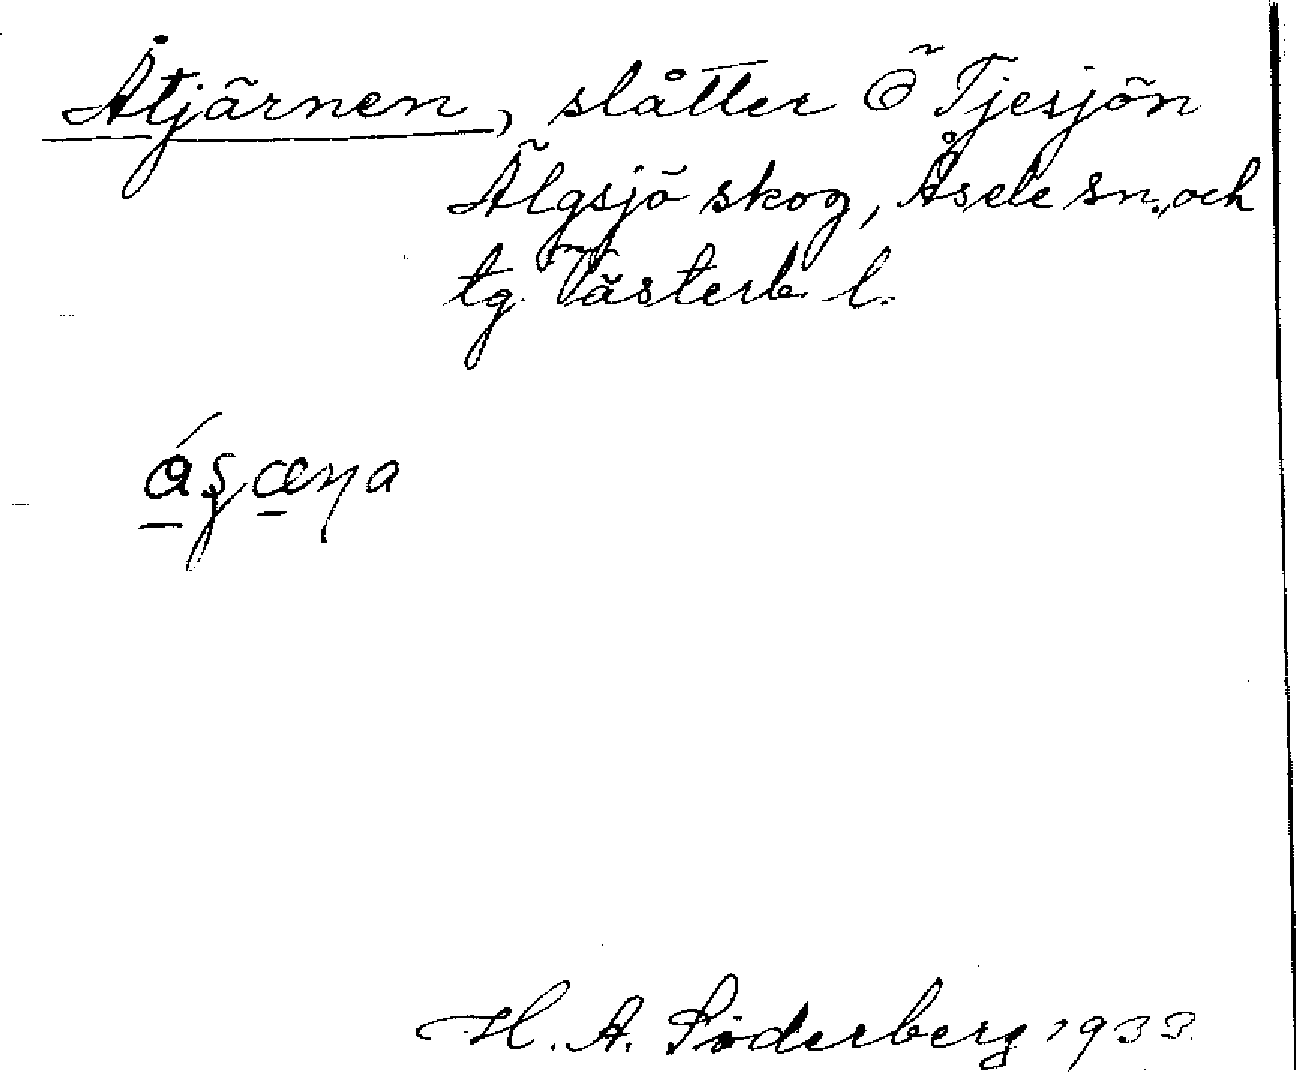 Åtjärnen, slåtter Ö Tjesjön
Älgsjö skog, Åsele sn. och
tg. Västerb. l.
H. A. Söderberg 1933